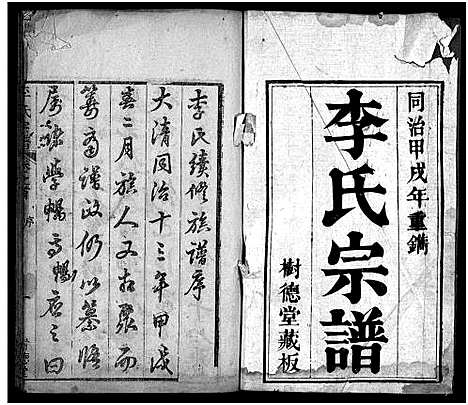 同治甲戌年重鐫
李氏宗譜
樹德堂藏板
李氏續修族譜序
大清同治十三年甲戌
春二月族人又相聚而
篹商譜政仍以慕悟
屬隸學暢應之曰